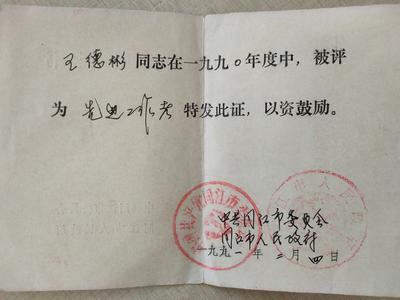 王德彬同志在一九九〇年度中，被评
为 先进工作者 特发此证，以资鼓励。
中共同江市委员会
同江市人民政府
一九九一年二月四日